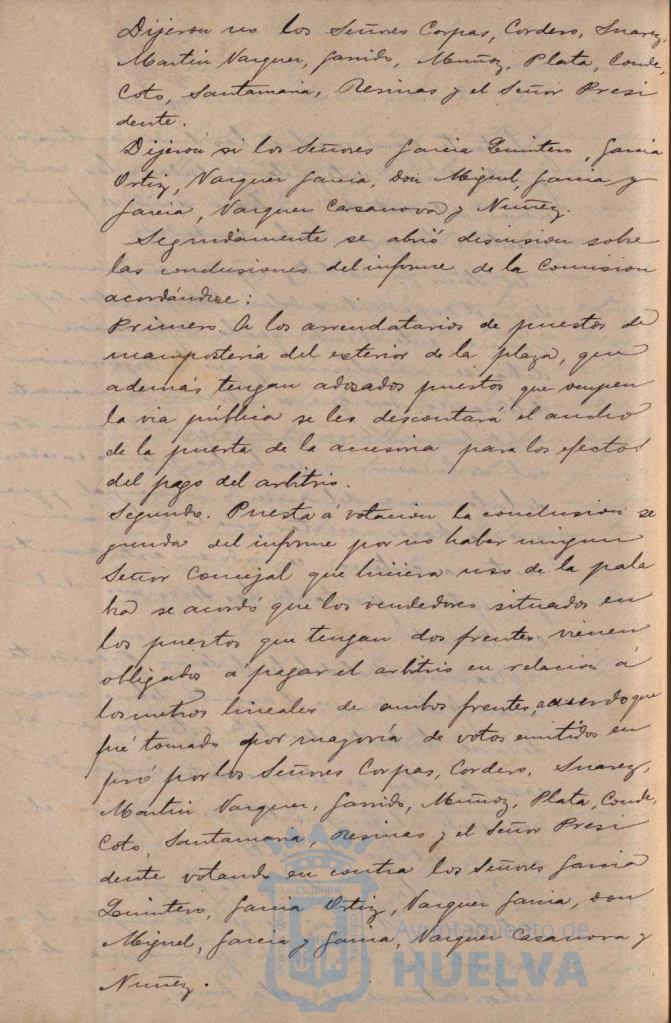 Dijeron no los Señores Corpas, Cordero, Suarez,
Martin Vazquez, Garrido, Muñoz, Plata, Conde,
Coto, Santamaria, Resinas y el Señor Presi
dente.
Dijeron si los Señores Garcia Quintero, Garcia
Ortiz, Vazquez Garcia, don Miguel, Garcia y
Garcia, Vazquez Casanova y Nuñez.
Seguidamente se abrió discusion sobre
las conclusiones del informe de la Comision
acordándose:
Primero. A los arrendatarios de puestos de
mamposteria del exterior de la plaza, que
además tengan adosados puestos que ocupen
la via pública se les descontará el ancho
de la puerta de la accesoria para los efectos
del pago del arbitrio.
Segundo. Puesta á votacion la conclusion se
gunda del informe por no haber ningun
Señor Concejal que hiciera uso de la pala
bra se acordó que los vendedores situados en
los puestos que tengan dos frentes vienen
obligados á pagar el arbitrio en relacion á
los metros lineales de ambos frentes, acuerdo que
fué tomado por mayoría de votos emitidos en
pró por los Señores Corpas, Cordero, Suarez,
Martin Vazquez, Garrido, Muñoz, Plata, Conde,
Coto, Santamaria, Resinas y el Señor Presi
dente votando en contra los Señores Garcia
Quintero, Garcia Ortiz, Vazquez Garcia, don
Miguel, Garcia y Garcia, Vazquez Casanova y
Nuñez.
Ayuntamiento de
HUELVA